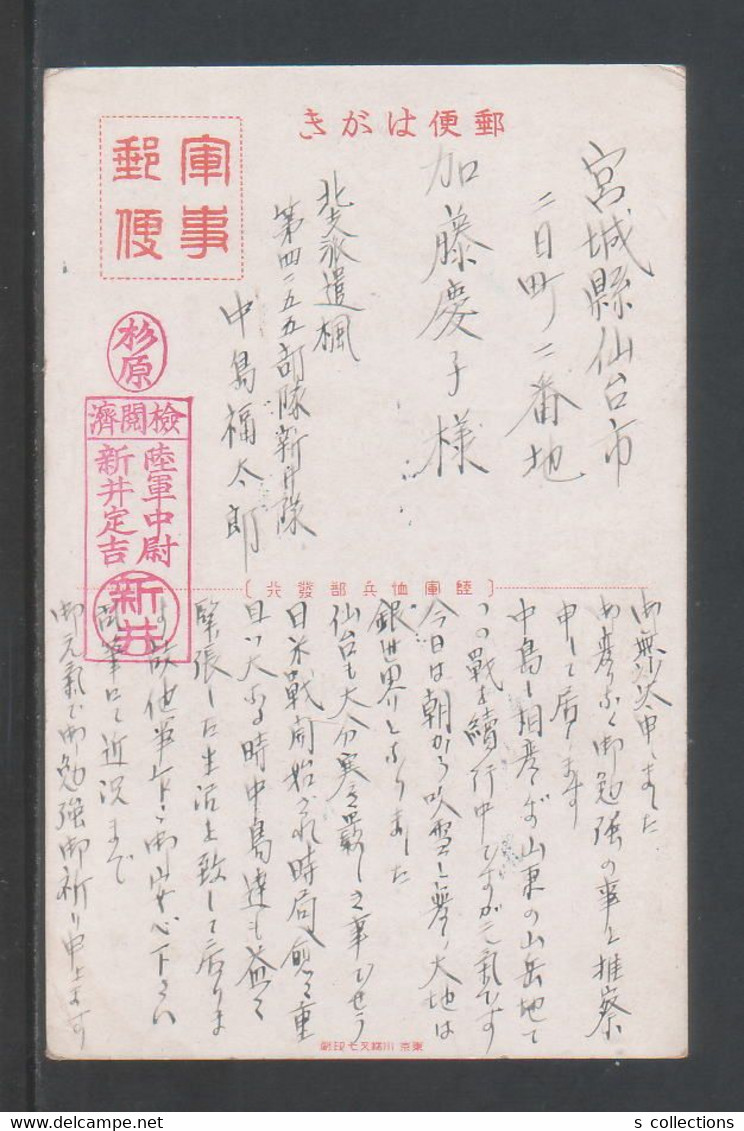 郵便はがき
軍事
郵便
宮城縣仙台市
二日町二番地
加藤慶子様
北支派遣楓
第四二五五部隊新井隊
中島福太郎
杉原
檢閲濟
陸軍中尉
新井定吉
新井
(陸軍恤兵部發行)
御無沙汰申しました
御変りなく御勉強の事と推察
申して居ります
中島も相変らず山東の山岳地で
この戰を續行中ですが元氣です
今日は朝から吹雪と夢の大地は
銀世界となりました
仙台も大分寒さ嚴しき事でせう
日米戰開始がされ時局愈々重
且つ大なる時中島達も益々
緊張した生活を致して居りま
す故他事乍ら御安心下さい
乱筆にて近況まで
御元氣で御勉強御祈り申上ます
東京 川端又七印刷
s collections